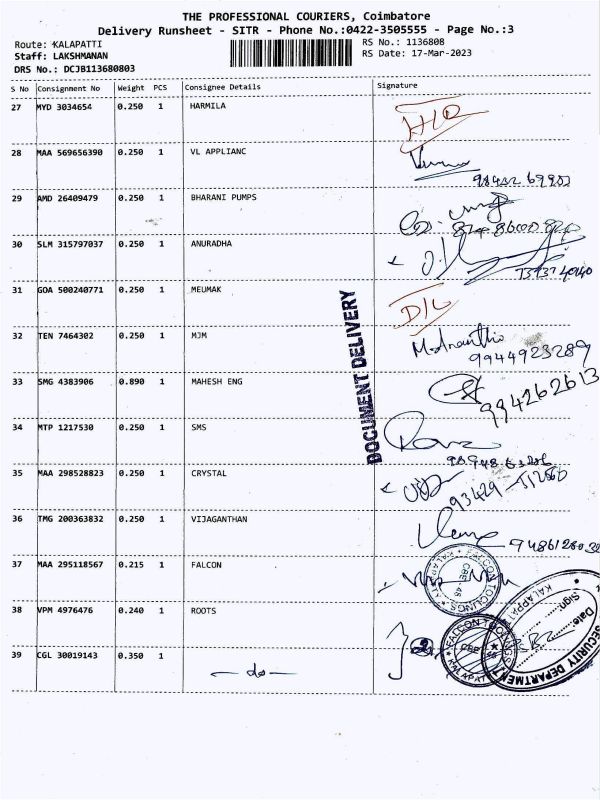 THE PROFESSIONAL COURIERS, Coimbatore
Delivery Runsheet - SITR - Phone No.:0422-3505555 - Page No.:3
Route: KALAPATTI
RS No.: 1136808
Staff: LAKSHMANAN
RS Date: 17-Mar-2023
DRS No.: DCJB113680803
S No Consignment No Weight PCS Consignee Details Signature
27 MYD 3034654 0.250 1 HARMILA
28 MAA 569656390 0.250 1 VL APPLIANC
29 AMD 26409479 0.250 1 BHARANI PUMPS
30 SLM 315797037 0.250 1 ANURADHA
31 GOA 500240771 0.250 1 MEUMAK
DOCUMENT DELIVERY
32 TEN 7464302 0.250 1 MJM
9944923289
33 SMG 4383906 0.890 1 MAHESH ENG
994262613
34 MTP 1217530 0.250 1 SMS
35 MAA 298528823 0.250 1 CRYSTAL
36 TMG 200363832 0.250 1 VIJAGANTHAN
37 MAA 295118567 0.215 1 FALCON
38 VPM 4976476 0.240 1 ROOTS
FALCON
KALAPATTI
Sign:
Date:
SECURITY DEPARTMENT
39 CGL 30019143 0.350 1 - do -